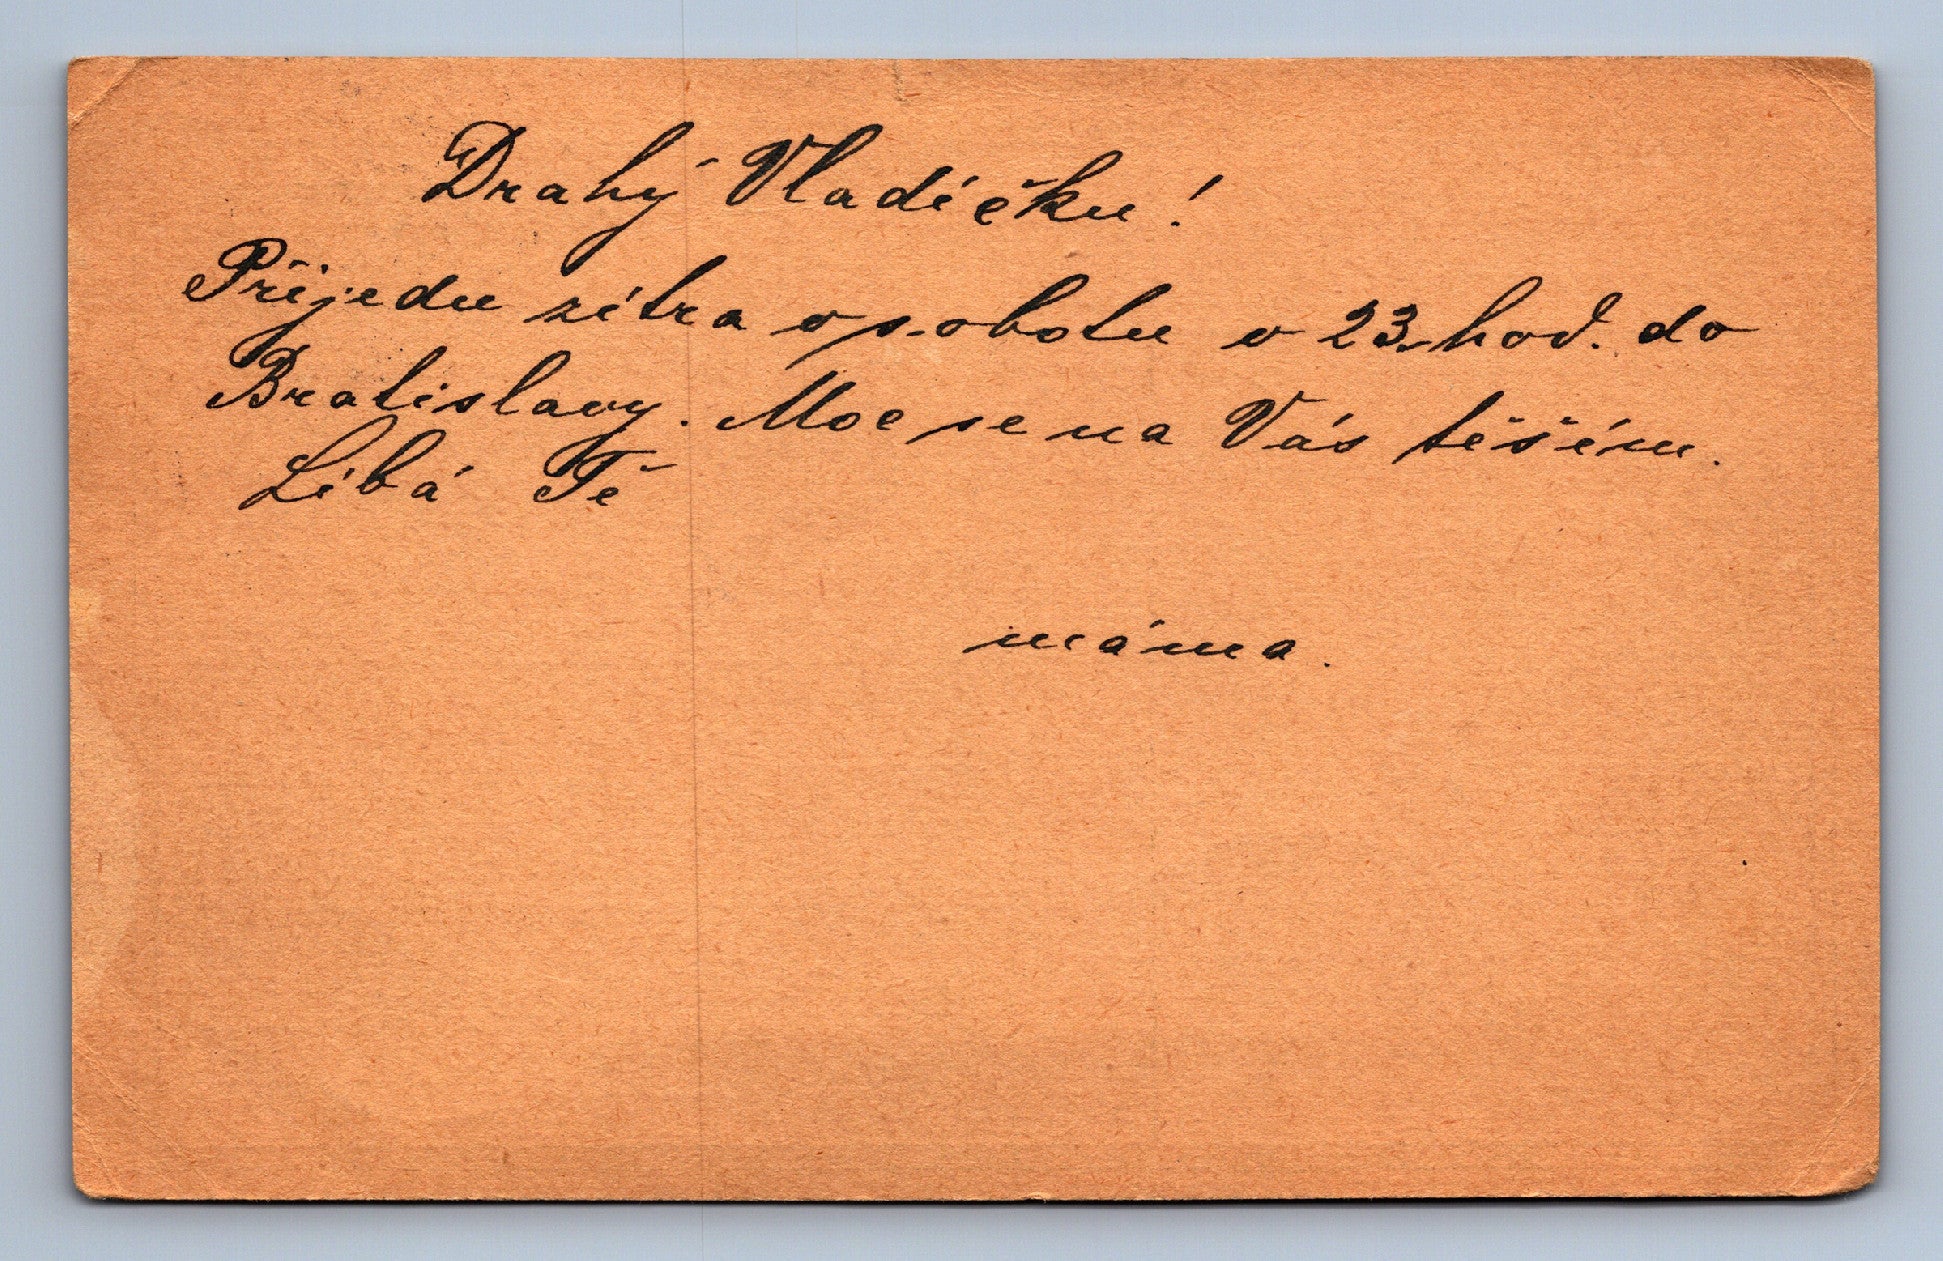 Drahý Vladíčku!
Přijedu zítra v sobotu v 23. hod. do
Bratislavy. Moc se na Vás těším.
Líbá Tě
máma.